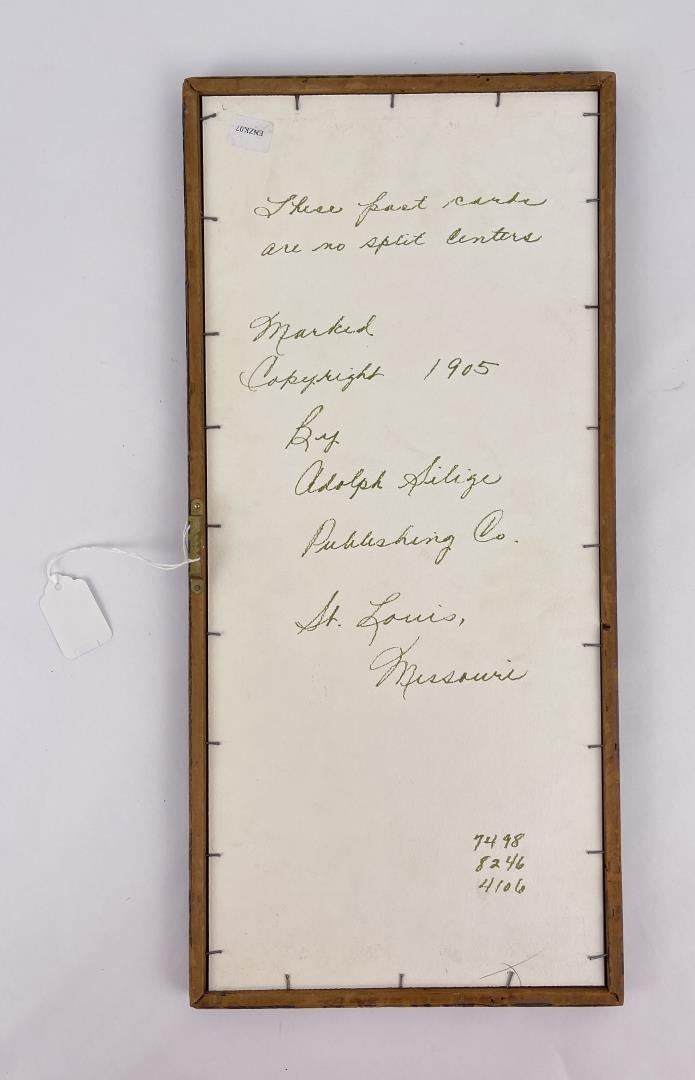 ENZK07
These post cards
are no split centers
Marked
Copyright 1905
By
Adolph Silige
Publishing Co.
St. Louis,
Missouri
7498
8246
4106